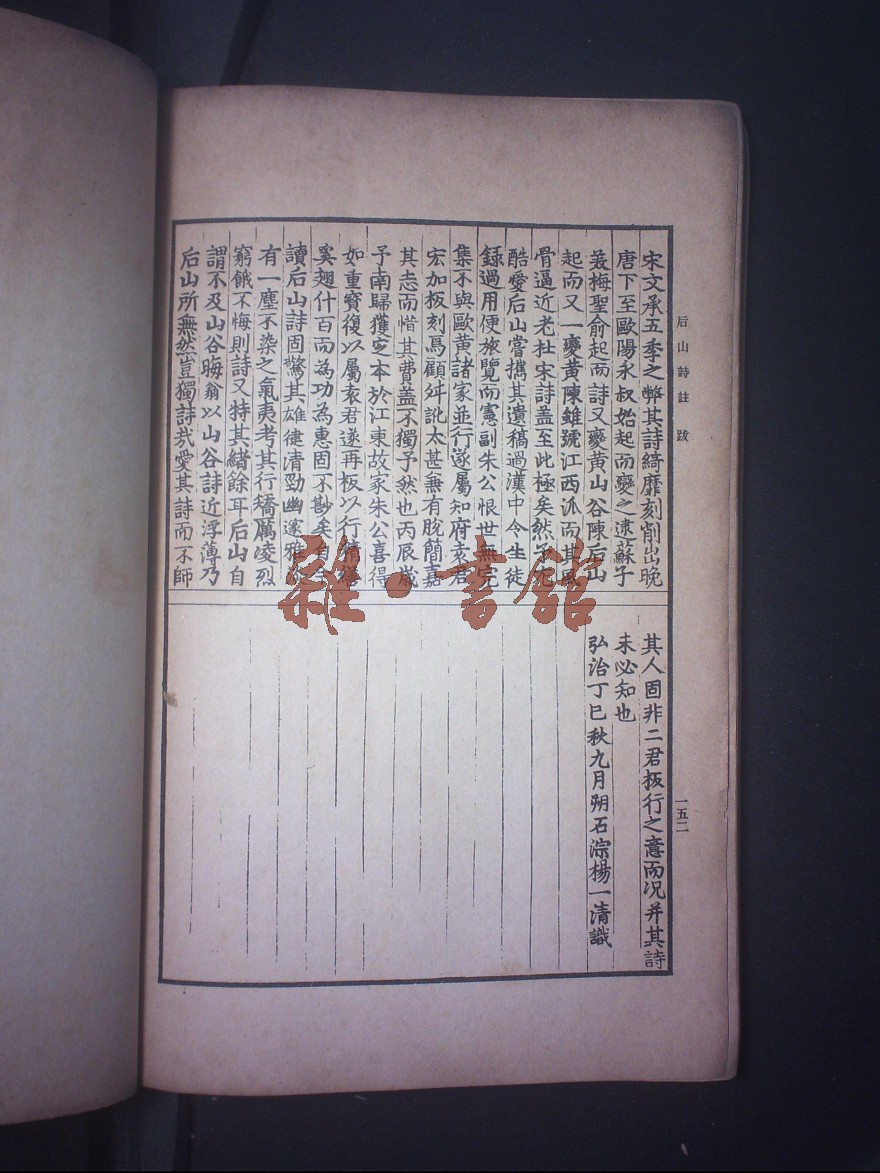 宋文承五季之弊其詩綺靡刻削出晚
唐下至歐陽永叔始起而變之逮蘇子
美梅聖俞起而詩又變黃山谷陳后山
起而又一變黃陳雖號江西派而其風
骨逼近老杜宋詩蓋至此極矣然予
酷愛后山嘗攜其遺稿過漢中令生徒
錄過用便旅覽而憲副朱公恨世無完
集不與歐黃諸家並行遂屬知府袁君
宏加板刻焉顧舛訛太甚無有脫簡嘉
其志而惜其費蓋不獨予然也丙辰歲
予南歸獲定本於江東故家朱公喜得
如重寶復以屬袁君遂再板以行精
奚翅什百而為功為惠固不尠矣自
讀后山詩固驚其雄健清勁幽邃雅
有一塵不染之氣夷考其行矯厲凌烈
窮餓不悔則詩又特其緒餘耳后山自
謂不及山谷晦翁以山谷詩近浮薄乃
后山所無然豈獨詩哉愛其詩而不師
其人固非二君板行之意而況并其詩
未必知也
弘治丁巳秋九月朔石淙楊一清識
后山詩註 跋
一五二
雜·書館